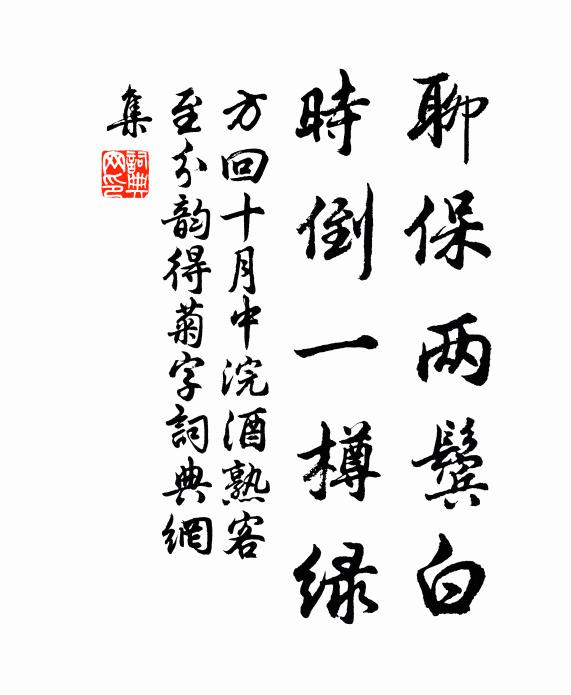 聊保两鬓白
時倒一樽绿
方回十月中浣酒熟客
至分韵得菊字詞典網
集
詞典网印